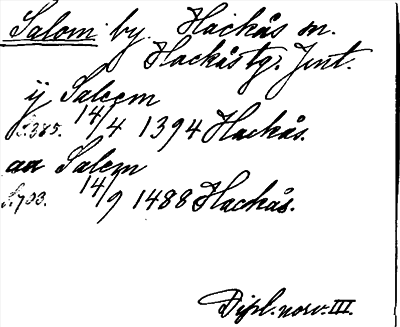 Salom by. Hackås sn.
Hackås tg. Jmt.
ij Saleem
S. 385. 14/4 1394 Hackås.
aa Salem
S. 703. 14/9 1488 Hackås.
Dipl. norv. III.